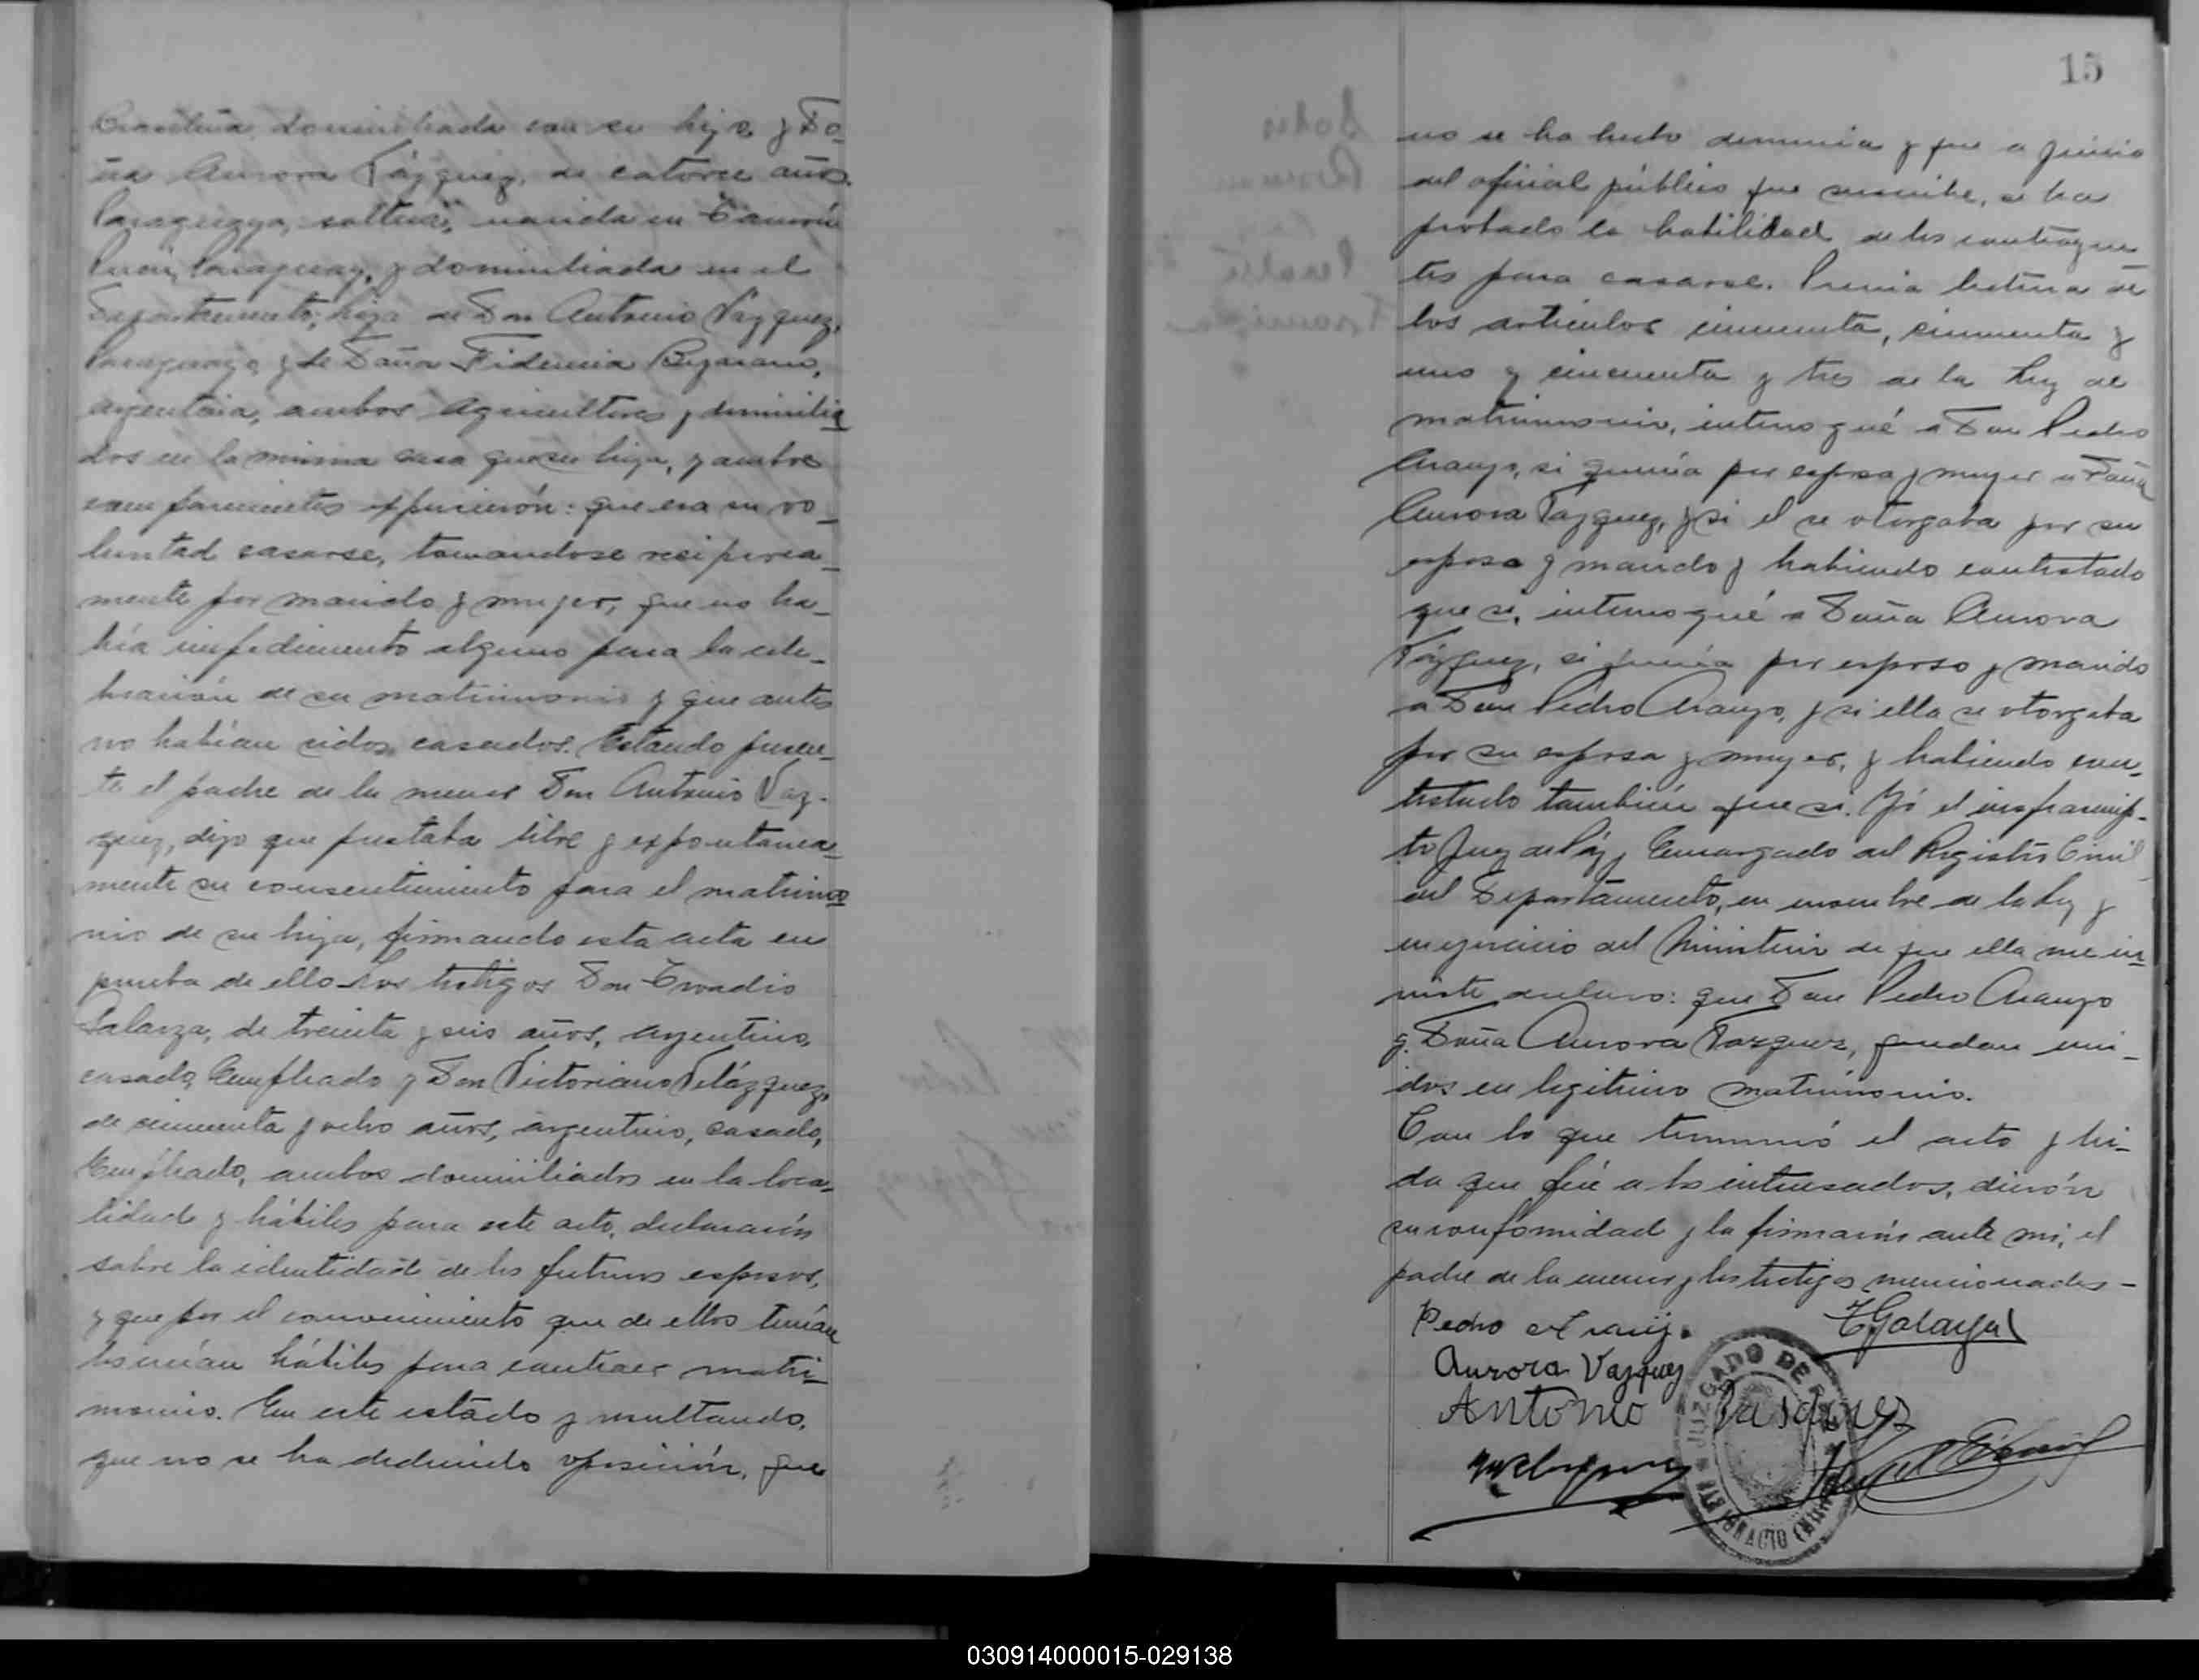 Brasileña, domiciliada con su hijo y Do-
ña Aurora Vázquez, de catorce años,
Paraguaya, soltera, nacida en
Paraguay, y domiciliada en el
Departamento; hija de Don Antonio Vázquez,
Paraguayo, y de Doña Fidencia Bejarano,
argentina, ambos agricultores y domicilia
dos en la misma casa que su hija, y ambos
comparecientes expusierón: que era su vo-
luntad casarse, tomandose reciproca-
mente por marido y mujer, que no ha-
bía impedimento alguno para la cele-
bración de su matrimonio y que antes
no habían sidos casados. Estando presen-
te el padre de la menor Don Antonio Vaz-
quez, dijo que prestaba libre y expontanea-
mente su consentimiento para el matrimo
nio de su hija, firmando esta acta en
prueba de ello. Los testigos Don
Galarza, de treinta y seis años, argentino,
casado, Empleado y Don Victoriano Velázquez,
de cincuenta y ocho años, argentino, casado,
Empleado, ambos domiciliados en la loca-
lidad y hábiles para este acto, declararón
sobre la identidad de los futuros esposos,
y que por el conocimiento que de ellos tenían
los creían hábiles para contraer matri-
monio. En este estado y resultando,
que no se ha deducido oposición, que
15
no se ha hecho denuncia y que a juicio
del oficial público que suscribe, se ha
probado la habilidad de los contrayen-
tes para casarse. Previa lectura de
los articulos cincuenta, cincuenta y
uno y cincuenta y tres de la Ley de
matrimonio, interrogué a Don Pedro
Araujo, si quería por esposa y mujer a Doña
Aurora Vázquez, y si el se otorgaba por su
esposo y marido y habiendo contestado
que si, interrogué a Doña Aurora
Vázquez, si quería por esposo y marido
a Don Pedro Araujo, y si ella se otorgaba
por su esposa y mujer, y habiendo con-
testado también que si. Yó el infrascrip-
to Juez de Páz, Encargado del Registro Civil
del Departamento, en nombre de la Ley y
en ejercicio del Ministerio de que ella me in
viste declaro: que Don Pedro Araujo
y Doña Aurora Vazquez, quedan uni-
dos en legitimo matrimonio.
Con lo que terminó el acto y lei-
da que fué a los interesados, dierón
su conformidad y la firmarón ante mi, el
padre de la menor y los testigos mencionados-
Pedro Arauj.
Aurora Vazquez
Antonio Vasquez
JUZGADO DE PAZ
SAN IGNACIO
030914000015-029138